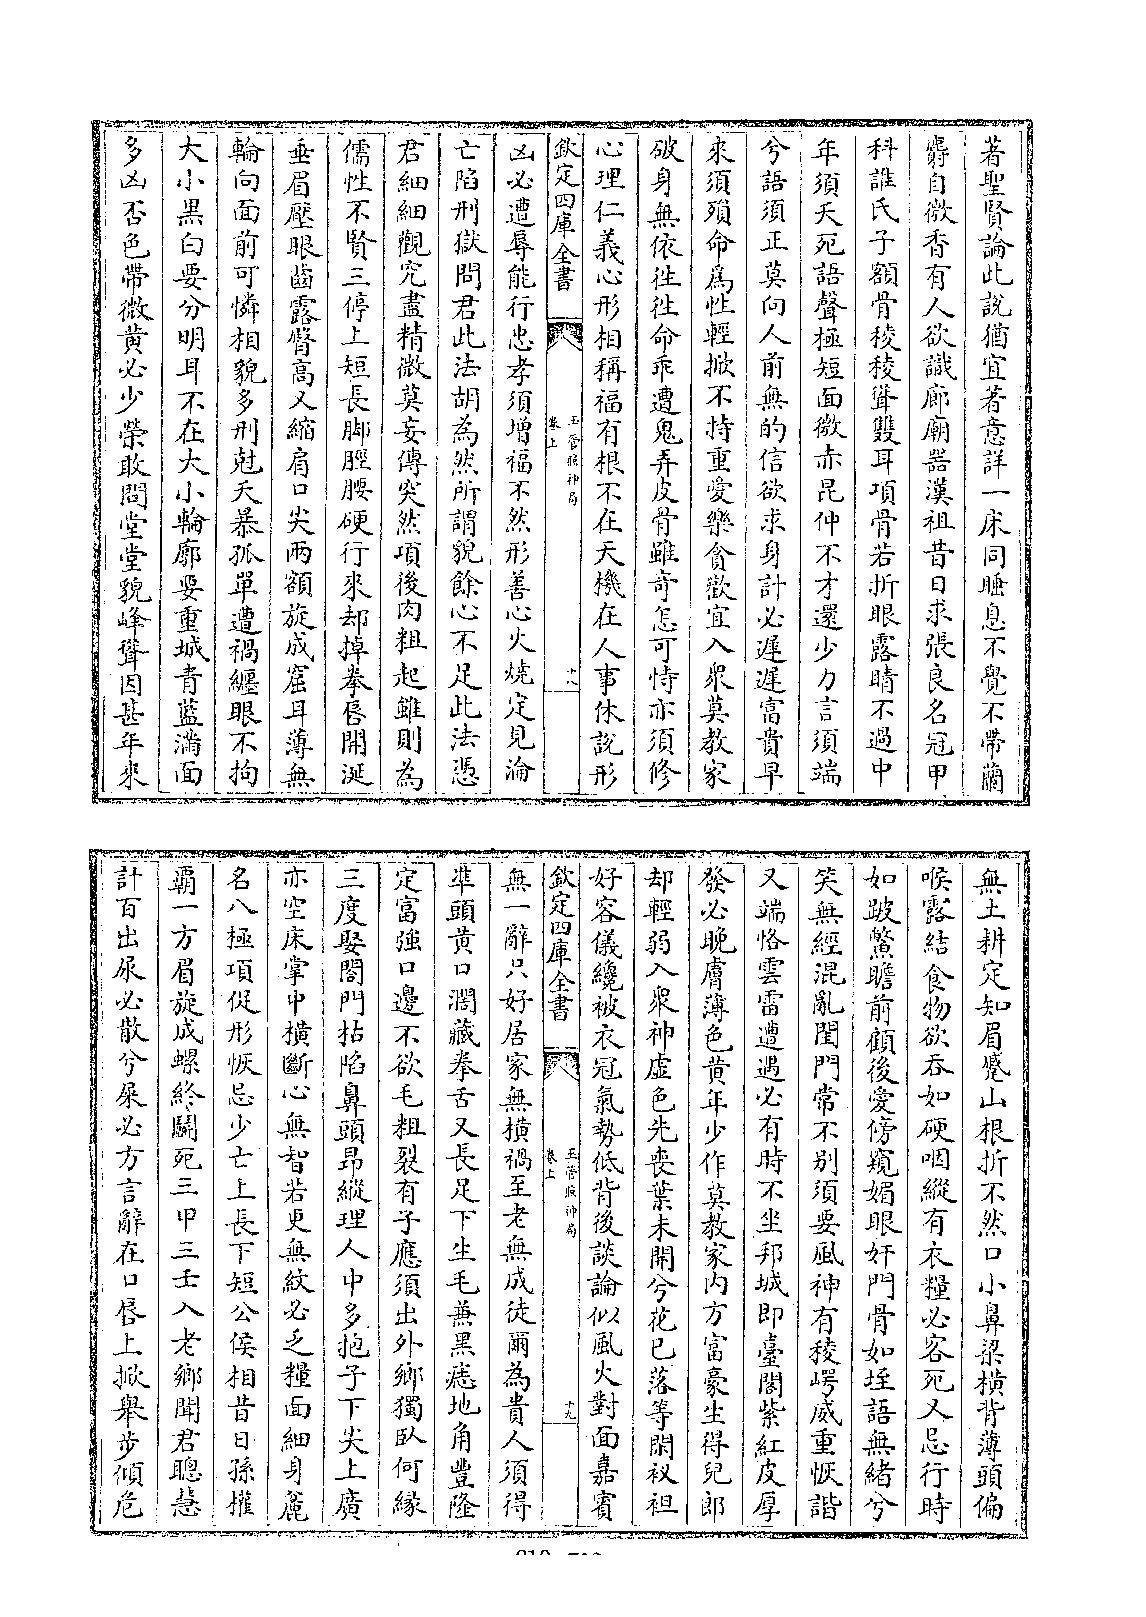 著聖賢論此說猶宜著意詳一床同睡息不覺不帶蘭
麝自微香有人欲識廊廟器漢祖昔日求張良名冠甲
科誰氏子額骨稜稜聳雙耳項骨若折眼露睛不過中
年須夭死語聲極短面微赤昆仲不才還少力言須端
兮語須正莫向人前無的信欲求身計必遲遲富貴早
來須殞命為性輕掀不持重愛樂貪歡宜入衆莫教家
破身無依往往命乖遭鬼弄皮骨雖竒怎可恃亦須修
心理仁義心形相稱福有根不在天機在人事休說形
欽定四庫全書
玉管照神局
卷上
十八
凶必遭辱能行忠孝須增福不然形善心火燒定見淪
亡陷刑獄問君此法胡為然所謂貌餘心不足此法憑
君細細觀究盡精微莫妄傳突然項後肉粗起雖則為
儒性不賢三停上短長脚脛腰硬行來却掉拳唇開涎
垂眉壓眼齒露臀高又縮肩口尖兩額旋成窟耳薄無
輪向面前可憐相貌多刑尅夭暴孤單遭禍纏眼不拘
大小黒白要分明耳不在大小輪廓要重城青藍滿面
多凶否色帶微黄必少榮敢問堂堂貌峰聳因甚年來
無土耕定知眉蹙山根折不然口小鼻梁横背薄頭偏
喉露結食物欲吞如硬咽縱有衣糧必客死又忌行時
如跛鱉瞻前顧後愛傍窺媚眼奸門骨如垤語無緒兮
笑無經混亂閨門常不别須要風神有稜崿威重恢諧
又端恪雲雷遭遇必有時不坐邦城即臺閣紫紅皮厚
發必晚膚薄色黄年少作莫教家内方富豪生得兒郎
却輕弱入衆神虛色先喪葉未開兮花已落等閑衩袒
好容儀纔被衣冠氣勢低背後談論似風火對面嘉賓
欽定四庫全書
玉管照神局
卷上
十九
無一辭只好居家無横禍至老無成徒爾為貴人須得
準頭黄口濶藏拳舌又長足下生毛兼黒痣地角豐隆
定富強口邊不欲毛粗裂有子應須出外鄉獨臥何縁
三度娶閤門拈陷鼻頭昂縱理人中多抱子下尖上廣
亦空床掌中横斷心無智若更無紋必乏糧面細身麄
名八極項促形恢忌少亡上長下短公侯相昔日孫權
霸一方眉旋成螺終鬬死三甲三壬入老鄉聞君聰慧
計百出尿必散兮屎必方言辭在口唇上掀舉步傾危